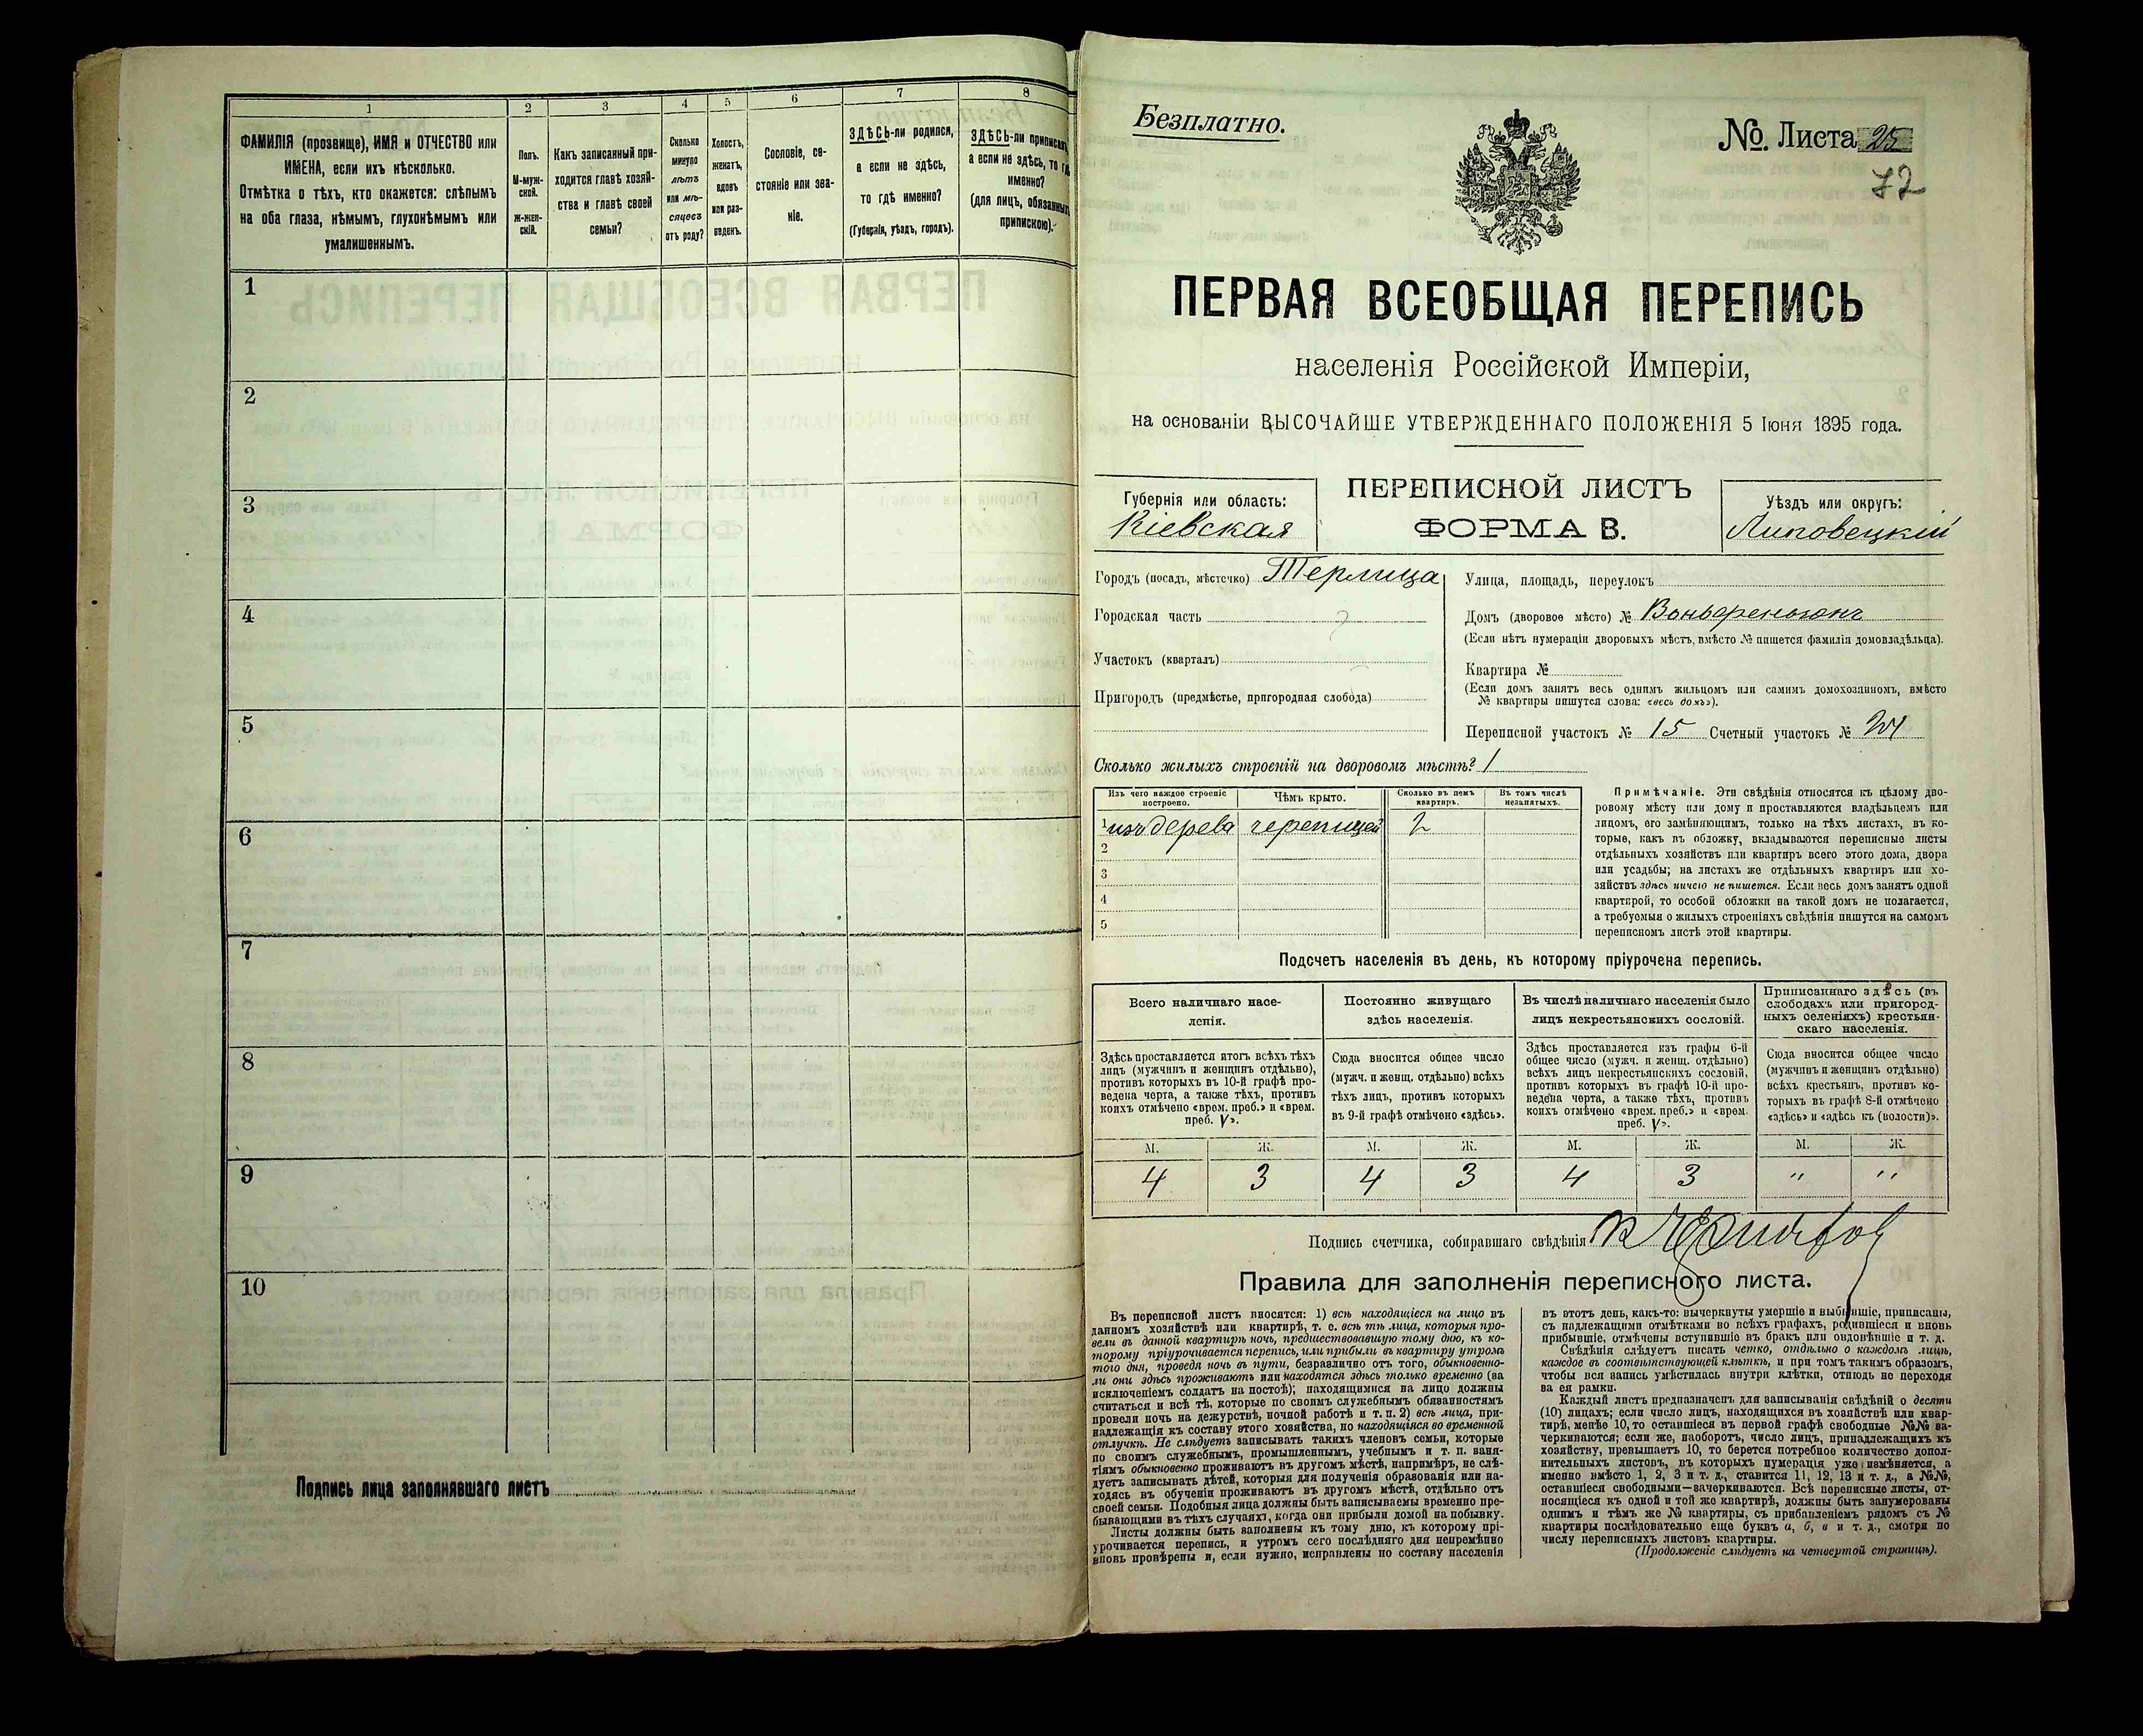 1
2
3
4
5
6
7
8
ФАМИЛІЯ (прозвище), ИМЯ и ОТЧЕСТВО или
ИМЕНА, если ихъ нѣсколько.
Отмѣтка о тѣхъ, кто окажется: слѣпымъ
на оба глаза, нѣмымъ, глухонѣмымъ или
умалишеннымъ.
Полъ.
М-муж-
ской.
Ж-жен-
скій.
Какъ записанный при-
ходится главѣ хозяй-
ства и главѣ своей
семьи?
Сколько
минуло
лѣтъ
или мѣ-
сяцевъ
отъ роду?
Холостъ,
женатъ,
вдовъ
или раз-
веденъ.
Сословіе, со-
стояніе или зва-
ніе.
ЗДѢСЬ-ли родился,
а если не здѣсь,
то гдѣ именно?
(Губернія, уѣздъ, городъ).
ЗДѢСЬ-ли приписанъ,
а если не здѣсь, то гдѣ
именно?
(для лицъ, обязанныхъ
припискою).
1
2
3
4
5
6
7
8
9
10
Подпись лица заполнявшаго листъ
Безплатно.
№ Листа 25
72
ПЕРВАЯ ВСЕОБЩАЯ ПЕРЕПИСЬ
населенія Россійской Имперіи,
на основаніи ВЫСОЧАЙШЕ УТВЕРЖДЕННАГО ПОЛОЖЕНІЯ 5 Іюня 1895 года.
Губернія или область:
Кіевская
ПЕРЕПИСНОЙ ЛИСТЪ
ФОРМА В.
Уѣздъ или округъ:
Липовецкій
Городъ (посадъ, мѣстечко) Терлица
Городская часть
Участокъ (кварталъ)
Пригородъ (предмѣстье, пригородная слобода)
Улица, площадь, переулокъ
Домъ (дворовое мѣсто) №
(Если нѣтъ нумераціи дворовыхъ мѣстъ, вмѣсто № пишется фамилія домовладѣльца).
Квартира №
(Если домъ занятъ весь однимъ жильцомъ или самимъ домохозяиномъ, вмѣсто
№ квартиры пишутся слова: «весь домъ»).
Переписной участокъ № 15 Счетный участокъ №
Сколько жилыхъ строеній на дворовомъ мѣстѣ? 1
Изъ чего каждое строеніе
построено.
Чѣмъ крыто.
Сколько въ немъ
квартиръ.
Въ томъ числѣ
незанятыхъ.
1 изъ дерева черепицей 2
2
3
4
5
Примѣчаніе. Эти свѣдѣнія относятся къ цѣлому дво-
ровому мѣсту или дому и проставляются владѣльцемъ или
лицомъ, его замѣняющимъ, только на тѣхъ листахъ, въ ко-
торые, какъ въ обложку, вкладываются переписные листы
отдѣльныхъ хозяйствъ или квартиръ всего этого дома, двора
или усадьбы; на листахъ же отдѣльныхъ квартиръ или хо-
зяйствъ здѣсь ничего не пишется. Если весь домъ занятъ одной
квартирой, то особой обложки на такой домъ не полагается,
а требуемыя о жилыхъ строеніяхъ свѣдѣнія пишутся на самомъ
переписномъ листѣ этой квартиры.
Подсчетъ населенія въ день, къ которому пріурочена перепись.
Всего наличнаго насе-
ленія.
Постоянно живущаго
здѣсь населенія.
Въ числѣ наличнаго населенія было
лицъ некрестьянскихъ сословій.
Приписаннаго здѣсь (въ
слободахъ или пригород-
ныхъ селеніяхъ) крестьян-
скаго населенія.
Здѣсь проставляется итогъ всѣхъ тѣхъ
лицъ (мужчинъ и женщинъ отдѣльно),
противъ которыхъ въ 10-й графѣ про-
ведена черта, а также тѣхъ, противъ
коихъ отмѣчено «врем. преб.» и «врем.
преб. V».
Сюда вносится общее число
(мужч. и женщ. отдѣльно) всѣхъ
тѣхъ лицъ, противъ которыхъ
въ 9-й графѣ отмѣчено «здѣсь».
Здѣсь проставляется изъ графы 6-й
общее число (мужч. и женщ. отдѣльно)
всѣхъ лицъ некрестьянскихъ сословій,
противъ которыхъ въ графѣ 10-й про-
ведена черта, а также тѣхъ, противъ
коихъ отмѣчено «врем. преб.» и «врем.
преб. V».
Сюда вносится общее число
(мужчинъ и женщинъ отдѣльно)
всѣхъ крестьянъ, противъ ко-
торыхъ въ графѣ 8-й отмѣчено
«здѣсь» и «здѣсь къ (волости)».
М. Ж. М. Ж. М. Ж. М. Ж.
4 3 4 3 4 3 " "
Подпись счетчика, собиравшаго свѣдѣнія
Правила для заполненія переписного листа.
Въ переписной листъ вносятся: 1) всѣ находящіеся на лицо въ
данномъ хозяйствѣ или квартирѣ, т. е. всѣ тѣ лица, которыя про-
вели въ данной квартирѣ ночь, предшествовавшую тому дню, къ ко-
торому пріурочивается перепись, или прибыли въ квартиру утромъ
того дня, проведя ночь въ пути, безразлично отъ того, обыкновенно-
ли они здѣсь проживаютъ или находятся здѣсь только временно (за
исключеніемъ солдатъ на постоѣ); находящимися на лицо должны
считаться и всѣ тѣ, которые по своимъ служебнымъ обязанностямъ
провели ночь на дежурствѣ, ночной работѣ и т. п. 2) всѣ лица, при-
надлежащія къ составу этого хозяйства, но находящіяся во временной
отлучкѣ. Не слѣдуетъ записывать такихъ членовъ семьи, которые
по своимъ служебнымъ, промышленнымъ, учебнымъ и т. п. заня-
тіямъ обыкновенно проживаютъ въ другомъ мѣстѣ, напримѣръ, не слѣ-
дуетъ записывать дѣтей, которыя для полученія образованія или на-
ходясь въ обученіи проживаютъ въ другомъ мѣстѣ, отдѣльно отъ
своей семьи. Подобныя лица должны быть записываемы временно пре-
бывающими въ тѣхъ случаяхъ, когда они прибыли домой на побывку.
Листы должны быть заполнены къ тому дню, къ которому прі-
урочивается перепись, и утромъ сего послѣдняго дня непремѣнно
вновь провѣрены и, если нужно, исправлены по составу населенія
въ этотъ день, какъ-то: вычеркнуты умершіе и выбывшіе, приписаны,
съ надлежащими отмѣтками во всѣхъ графахъ, родившіеся и вновь
прибывшіе, отмѣчены вступившіе въ бракъ или овдовѣвшіе и т. д.
Свѣдѣнія слѣдуетъ писать четко, отдѣльно о каждомъ лицѣ,
каждое въ соотвѣтствующей клѣткѣ, и при томъ такимъ образомъ,
чтобы вся запись умѣстилась внутри клѣтки, отнюдь не переходя
за ея рамки.
Каждый листъ предназначенъ для записыванія свѣдѣній о десяти
(10) лицахъ; если число лицъ, находящихся въ хозяйствѣ или квар-
тирѣ, менѣе 10, то оставшіеся въ первой графѣ свободные №№ за-
черкиваются; если же, наоборотъ, число лицъ, принадлежащихъ къ
хозяйству, превышаетъ 10, то берется потребное количество допол-
нительныхъ листовъ, въ которыхъ нумерація уже измѣняется, а
именно вмѣсто 1, 2, 3 и т. д., ставится 11, 12, 13 и т. д., а №№,
оставшіеся свободными—зачеркиваются. Всѣ переписные листы, от-
носящіеся къ одной и той же квартирѣ, должны быть занумерованы
однимъ и тѣмъ же № квартиры, съ прибавленіемъ рядомъ съ №
квартиры послѣдовательно еще буквъ а, б, в и т. д., смотря по
числу переписныхъ листовъ квартиры.
(Продолженіе слѣдуетъ на четвертой страницѣ).